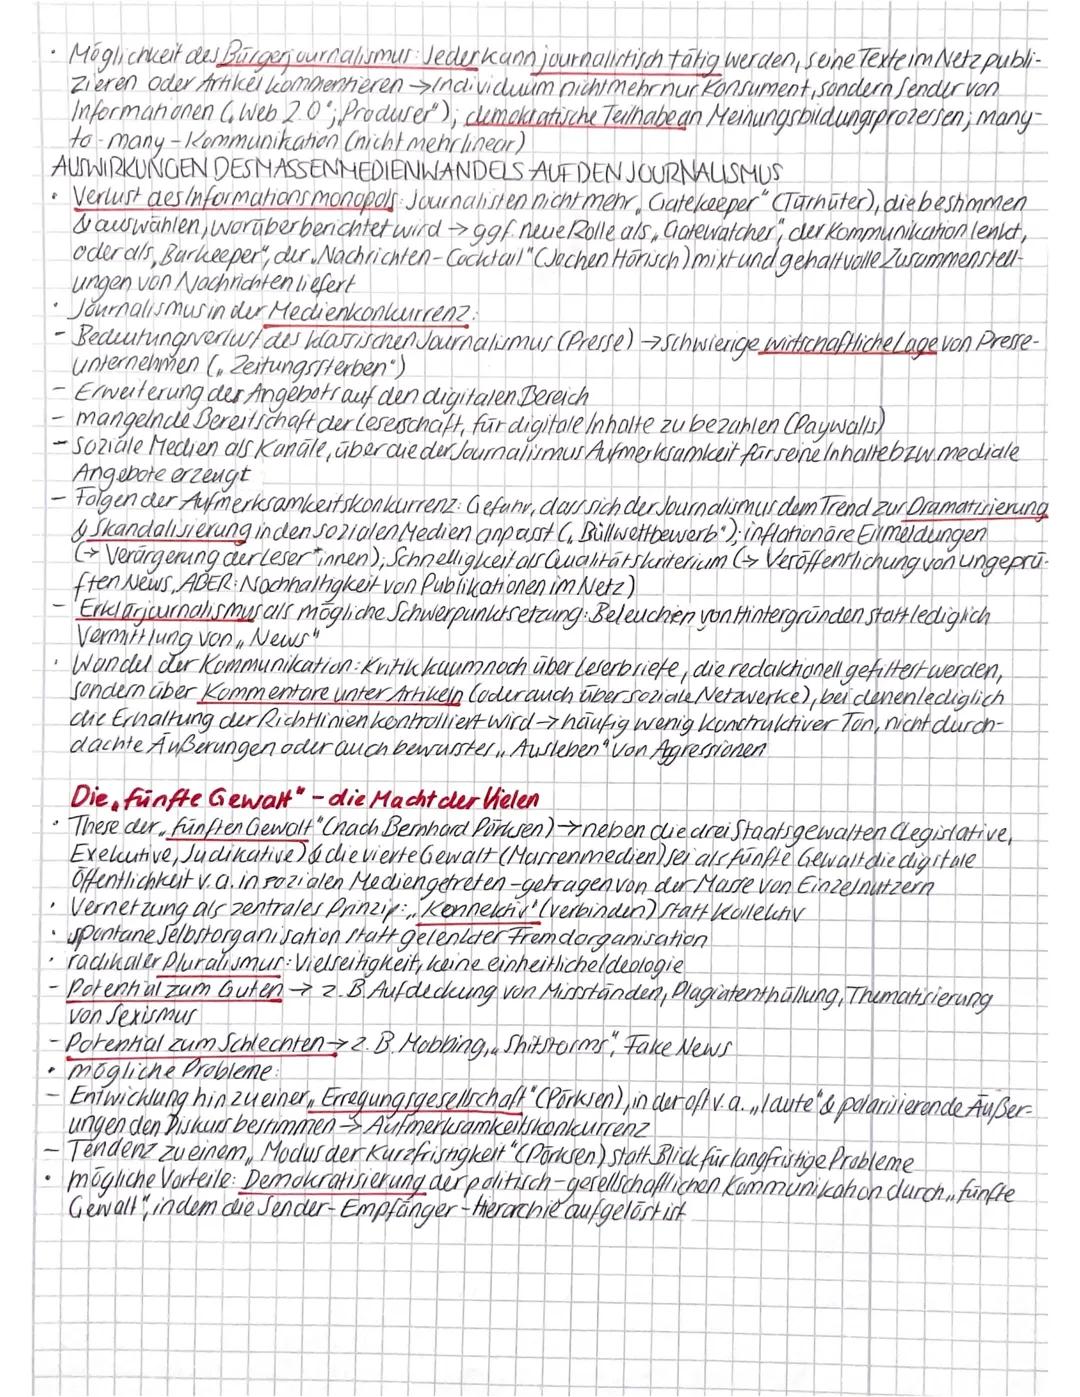 · Möglichkeit des Bürgerjournalismus: Jeder kann journalistisch tätig werden, seine Texte im Netz publi-
zieren oder Artikel kommentieren → Individuum nicht mehr nur Konsument, sondern Sender von
Informationen („Web 2.0"; „Produser"); demokratische Teilhabe an Meinungsbildungsprozessen; many-
to-many-Kommunikation (nicht mehr linear)
AUSWIRKUNGEN DES MASSENMEDIENWANDELS AUF DEN JOURNALISMUS
· Verlust des Informationsmonopols: Journalisten nicht mehr „Gatekeeper" (Türhüter), die bestimmen
& auswählen, worüber berichtet wird → ggf. neue Rolle als „Gatewatcher", der Kommunikation lenkt,
oder als „Barkeeper", der „Nachrichten-Cocktail" (Jochen Hörisch) mixt und gehaltvolle Zusammenstell-
ungen von Nachrichten liefert
· Journalismus in der Medienkonkurrenz:
- Bedeutungsverlust des klassischen Journalismus (Presse) → schwierige wirtschaftliche Lage von Presse-
unternehmen („Zeitungssterben")
- Erweiterung des Angebots auf den digitalen Bereich
- mangelnde Bereitschaft der Leserschaft, für digitale Inhalte zu bezahlen (Paywalls)
- soziale Medien als Kanäle, über die der Journalismus Aufmerksamkeit für seine Inhalte bzw. mediale
Angebote erzeugt
- Folgen der Aufmerksamkeitskonkurrenz: Gefahr, dass sich der Journalismus dem Trend zur Dramatisierung
& Skandalisierung in den sozialen Medien anpasst („Brüllwettbewerb"); inflationäre Eilmeldungen
(→ Verärgerung der Leser*innen); Schnelligkeit als Qualitätskriterium (→ Veröffentlichung von ungeprü-
ften News, ABER: Nachhaltigkeit von Publikationen im Netz)
- Erklärjournalismus als mögliche Schwerpunktsetzung: Beleuchten von Hintergründen statt lediglich
Vermittlung von „News"
· Wandel der Kommunikation: Kritik kaum noch über Leserbriefe, die redaktionell gefiltert werden,
sondern über Kommentare unter Artikeln (oder auch über soziale Netzwerke), bei denen lediglich
die Einhaltung der Richtlinien kontrolliert wird → häufig wenig konstruktiver Ton, nicht durch-
dachte Äußerungen oder auch bewusster „Ausleben" von Aggressionen
Die „fünfte Gewalt" - die Macht der Vielen
· These der „fünften Gewalt" (nach Bernhard Pörksen) → neben die drei Staatsgewalten (Legislative,
Exekutive, Judikative) & die vierte Gewalt (Massenmedien) sei als fünfte Gewalt die digitale
Öffentlichkeit v.a. in sozialen Medien getreten - getragen von der Masse von Einzelnutzern
· Vernetzung als zentrales Prinzip: „Konnektiv" (verbinden) statt Kollektiv
· spontane Selbstorganisation statt gelenkter Fremdorganisation
· radikaler Pluralismus: Vielseitigkeit, keine einheitliche Ideologie
- Potential zum Guten → z.B. Aufdeckung von Missständen, Plagiatenthüllung, Thematisierung
von Sexismus
- Potential zum Schlechten → z.B. Mobbing, „Shitstorms", Fake News
· mögliche Probleme:
- Entwicklung hin zu einer „Erregungsgesellschaft" (Pörksen), in der oft v.a. „laute" & polarisierende Äußer-
ungen den Diskurs bestimmen → Aufmerksamkeitskonkurrenz
- Tendenz zu einem „Modus der Kurzfristigkeit" (Pörksen) statt Blick für langfristige Probleme
· mögliche Vorteile: Demokratisierung der politisch-gesellschaftlichen Kommunikation durch „fünfte
Gewalt", indem die Sender-Empfänger-Hierarchie aufgelöst ist